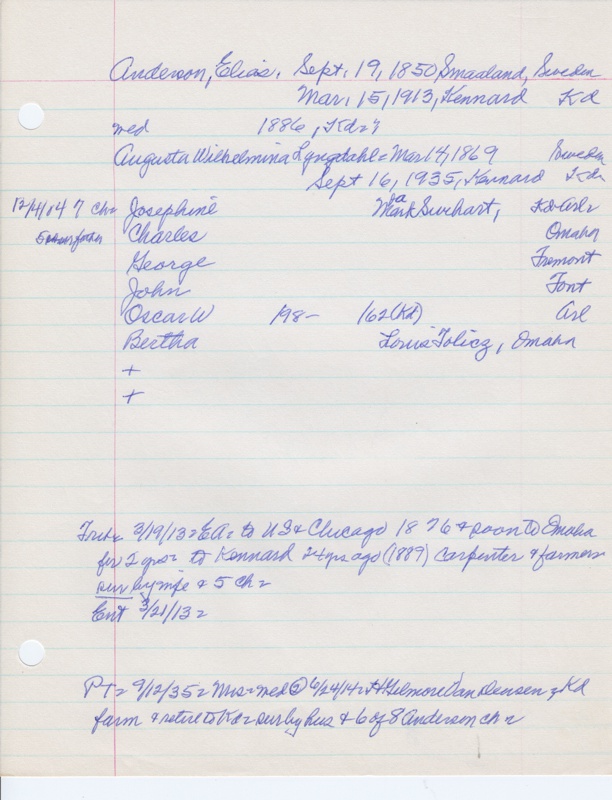 Anderson, Elias, Sept. 19, 1850 Smaaland, Sweden
Mar. 15, 1913, Kennard Kd
med 1886, Kd=?
Augusta Wilhelmina Lyngdahl = Mar 14, 1869 Sweden
Sept 16, 1935, Kennard Kd
12/4/04 7 Ch= Josephine Mark Swihart, Kd-Arl=
Charles Omaha
George Fremont
John Font
Oscar W 198- 162 (Kd) Arl
Bertha Louis Tolicz, Omaha
+
+
Trib= 3/19/13= EA= to US & Chicago 1876 & soon to Omaha
for 2 yrs= to Kennard 24 yrs ago (1889) Carpenter & farmer=
sur by wife & 5 ch=
Ent 3/21/13=
PT= 9/12/35= Mrs= med @ 6/24/14= H Gilmore Van Deusen, Kd
farm & retire to Kd= sur by hus & 6 of 8 Anderson ch=